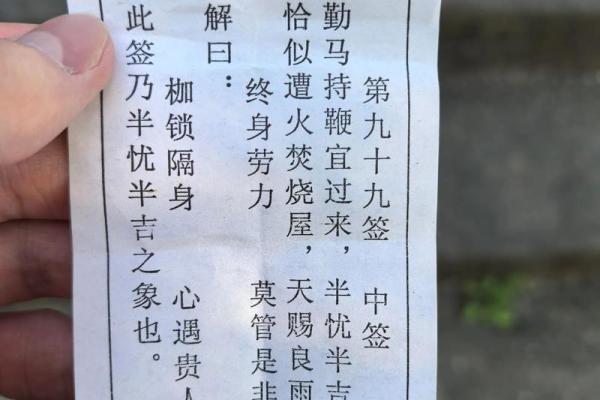 第九十九签 中签
勤马持鞭宜过来，半忧半吉
恰似遭火焚烧屋，天赐良雨
解曰：
终身劳力 莫管是非
枷锁隔身 心遇贵人
此签乃半忧半吉之象也。